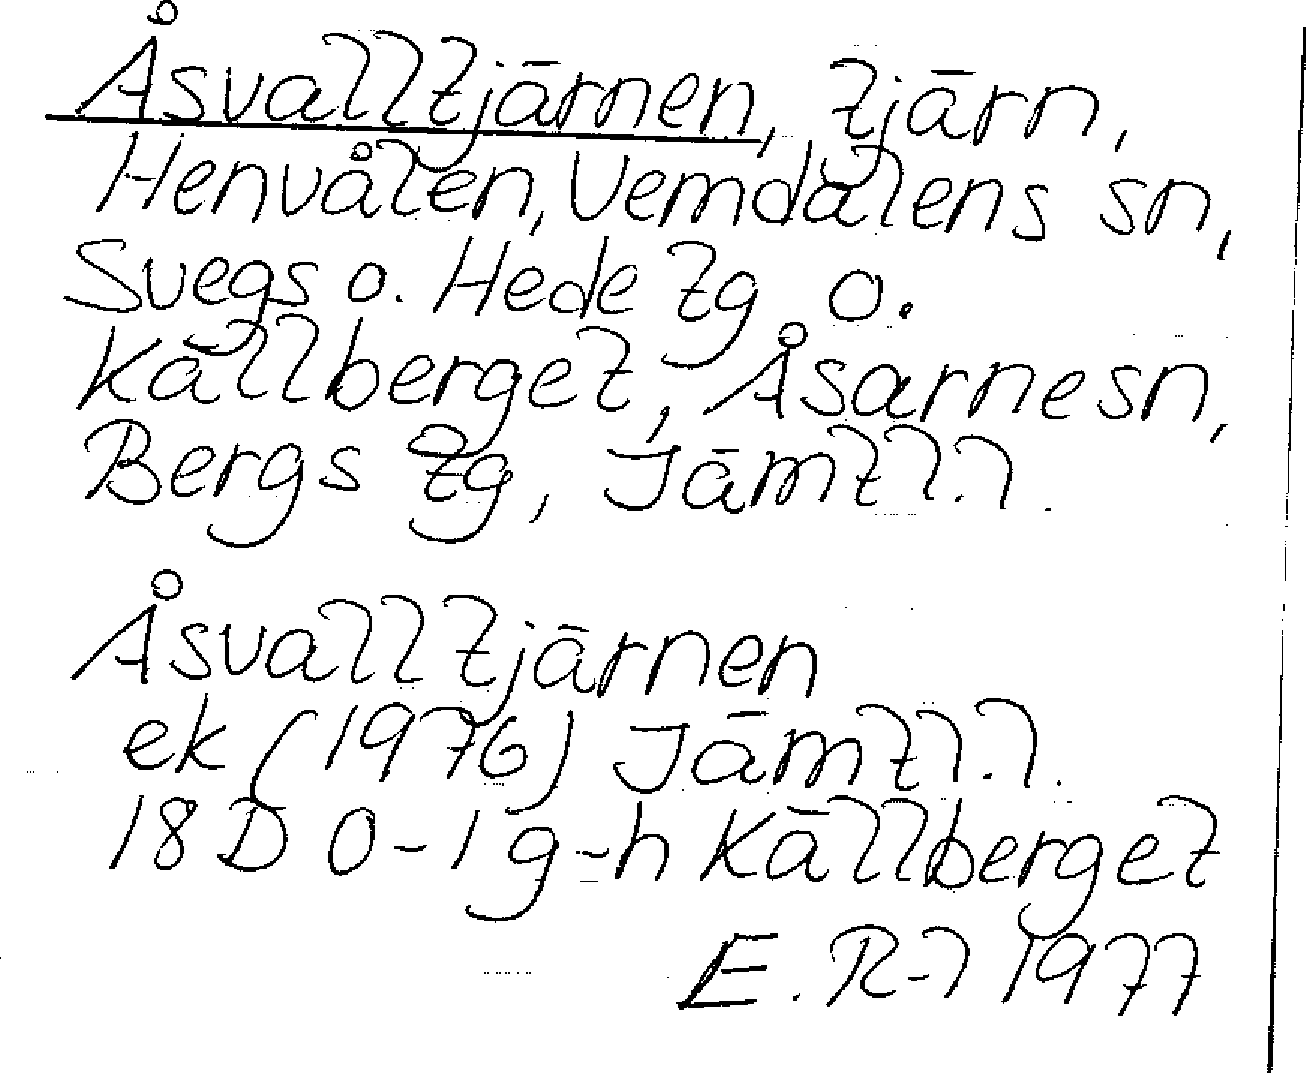 Åsvalltjärnen, tjärn,
Henvålen, Vemdalens sn,
Svegs o. Hede tg o.
Källberget, Åsarne sn,
Bergs tg, Jämtl.l.
Åsvalltjärnen
ek (1976) Jämtl.l.
18D 0-1 g-h Källberget
E. R-l 1977